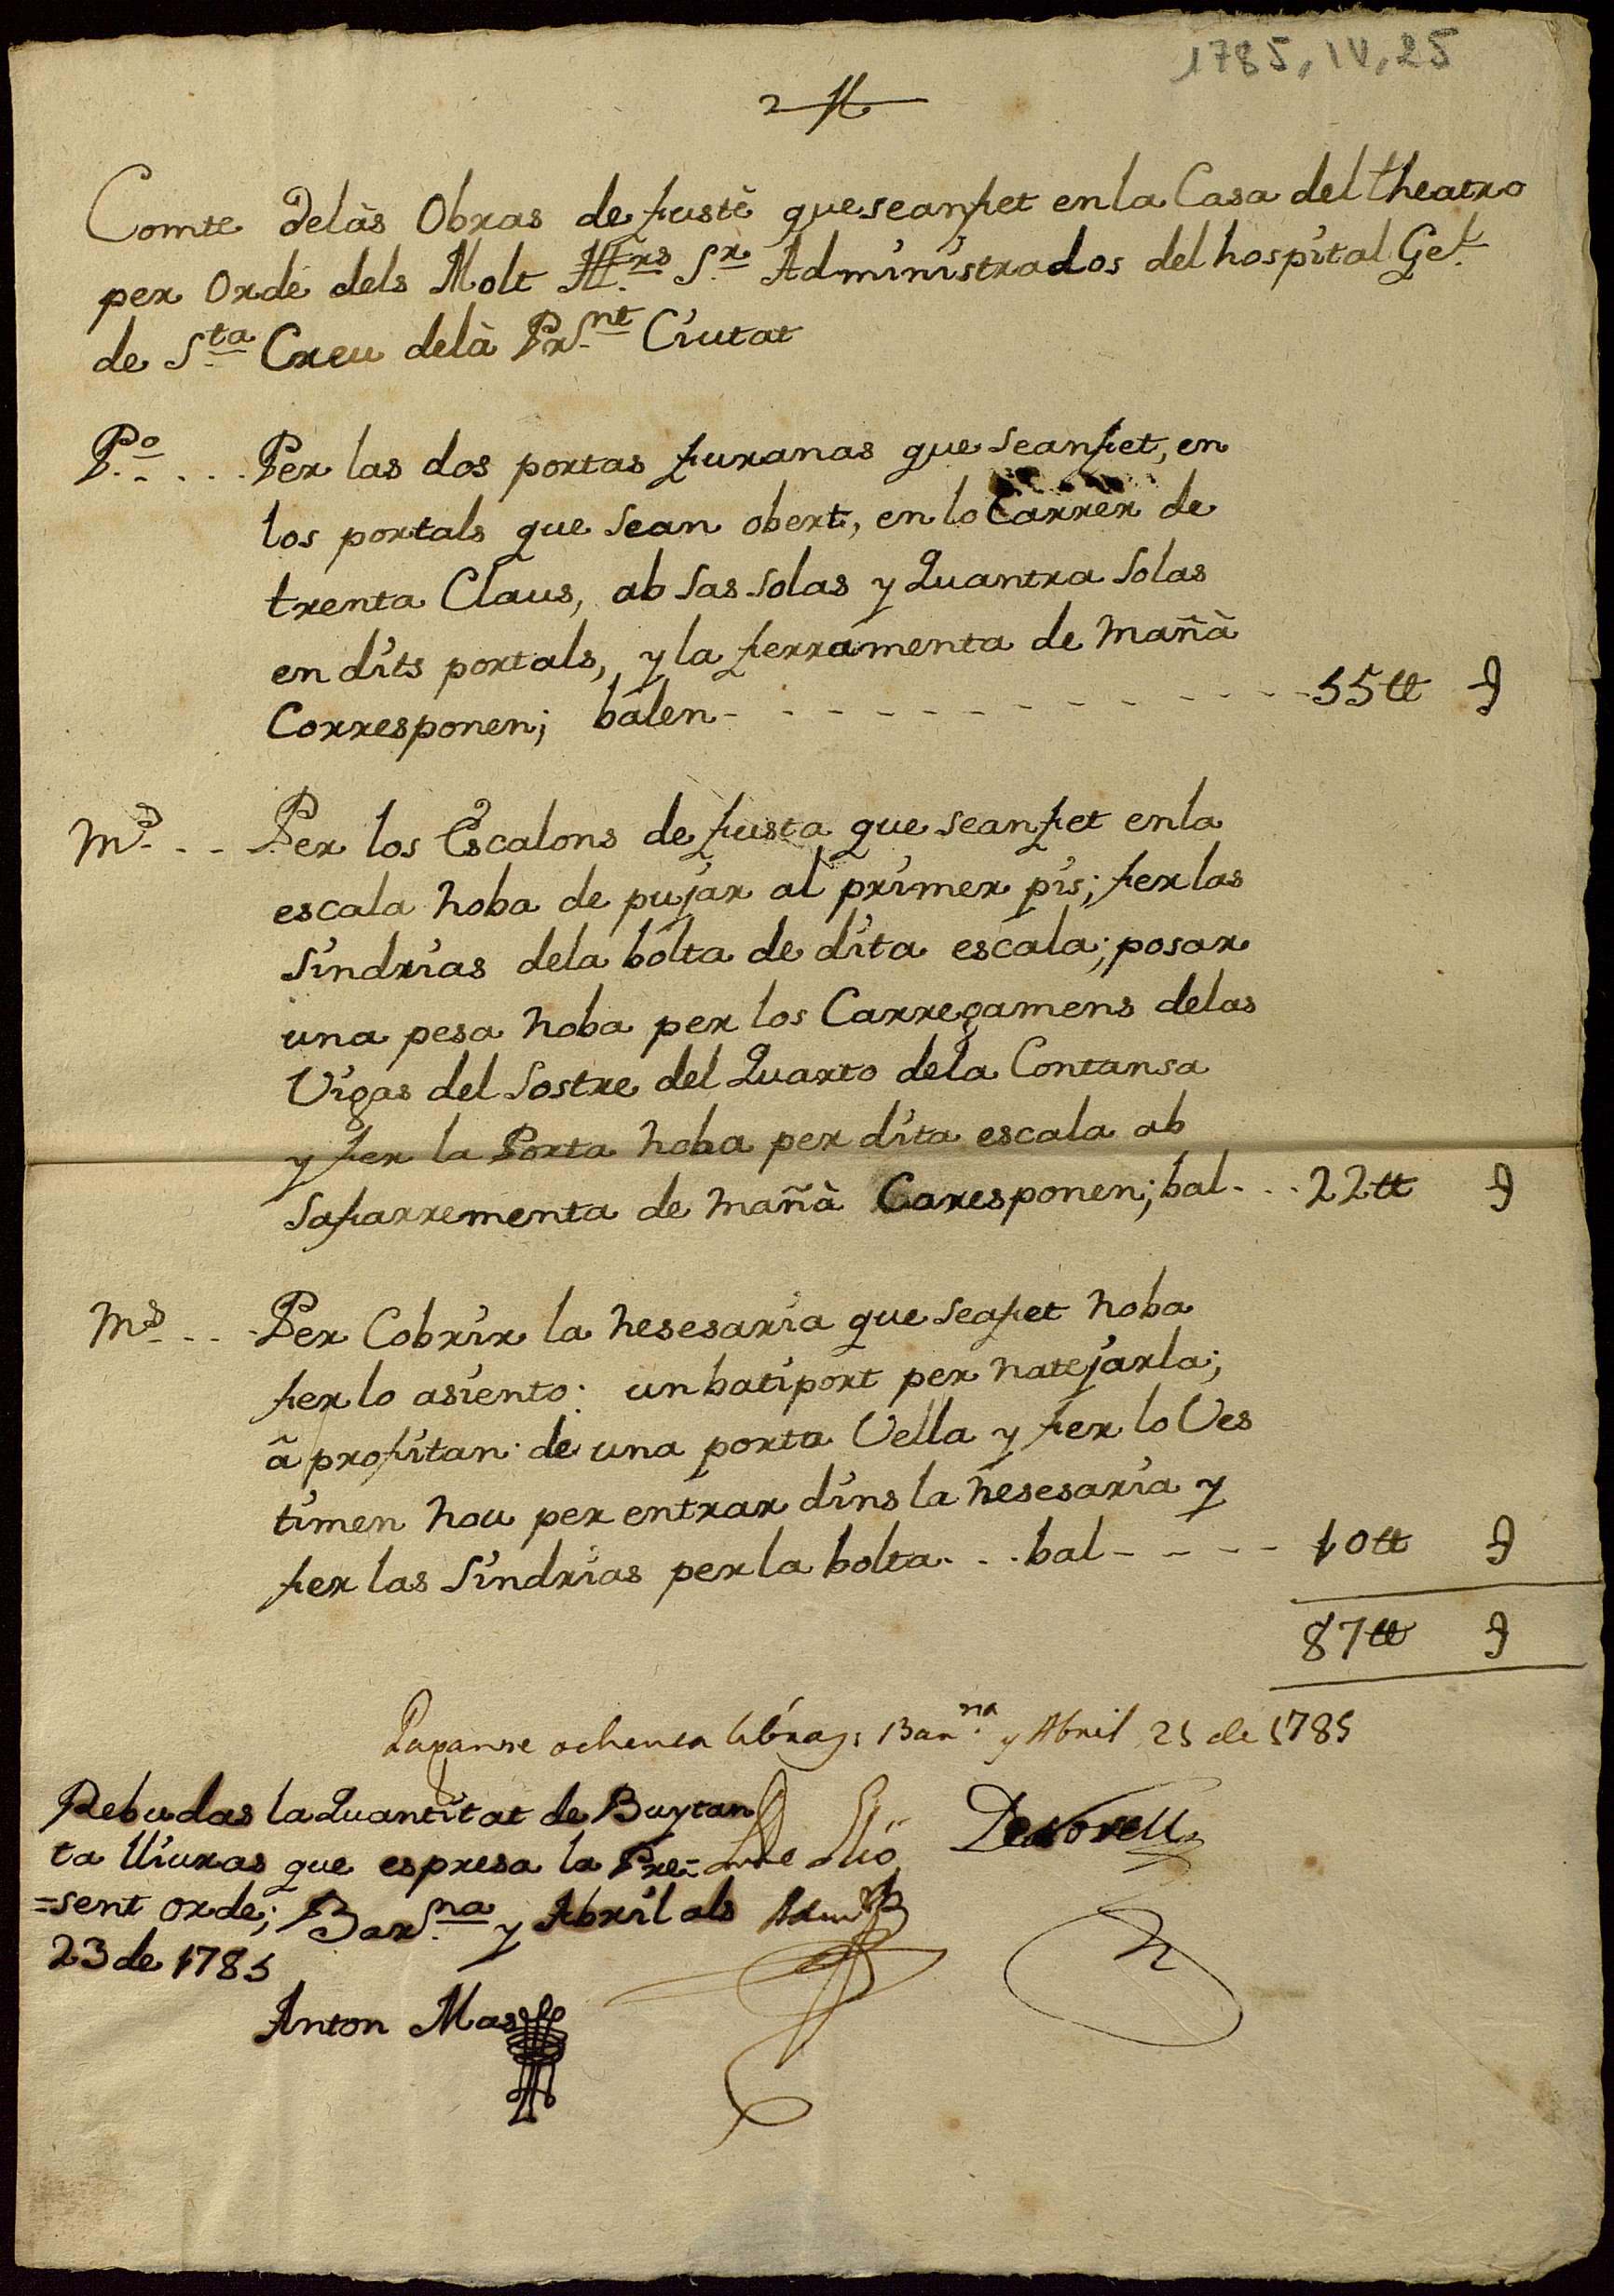 1785, IV, 25
Comte delàs Obras de fustè que seanfet en la Casa del theatro
per Orde dels Molt Ill.rs S.rs Administrados del hospital Gel.
de S.ta Creu delà Prs.nt Ciutat
P.o .... Per las dos portas furanas que seanfet, en
los portals que sean obert, en lo Carrer de
trenta Claus, ab sas solas y Quantra solas
en dits portals, y la ferramenta de mañà
Corresponen; balen - - - - - - - - - - 55 tt
M.s ... Per los Escalons de fusta que seanfet en la
escala noba de pujar al primer pis; fer las
sindrias dela bolta de dita escala; posar
una pesa noba per los Carregamens delas
Vigas del sostre del Quarto dela Contansa
y fer la Porta noba per dita escala ab
safarrementa de mañà Caresponen; bal - . . 22 tt
M.s ... Per Cobrir la nesesaria que seafet noba
fer lo asiento: un batiport per natejarla;
â profitan de una porta Vella y fer lo Ves
timen nou per entrar dins la nesesaria y
fer las sindrias per la bolta . . . bal - - - - - 10 tt
87 tt
Paganse ochenta libras: Bar.na y Abril 25 de 1785
Rebudas la Quantitat de Buytan
ta lliuras que espresa la Pre=
=sent orde; Bars.na y Abril als
23 de 1785
Anton Mas